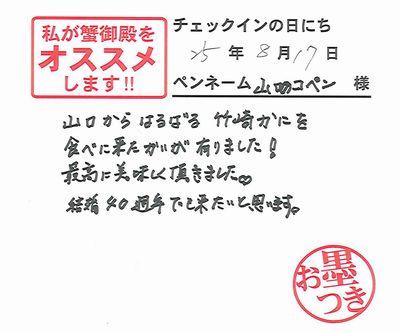 私が蟹御殿を
オススメ
します!!
チェックインの日にち
25年8月17日
ペンネーム 山口コペン 様
山口からはるばる竹崎かにを
食べに来たかいが有りました!
最高に美味しく頂きました♡
結婚40週年で来たいと思います。
お墨つき